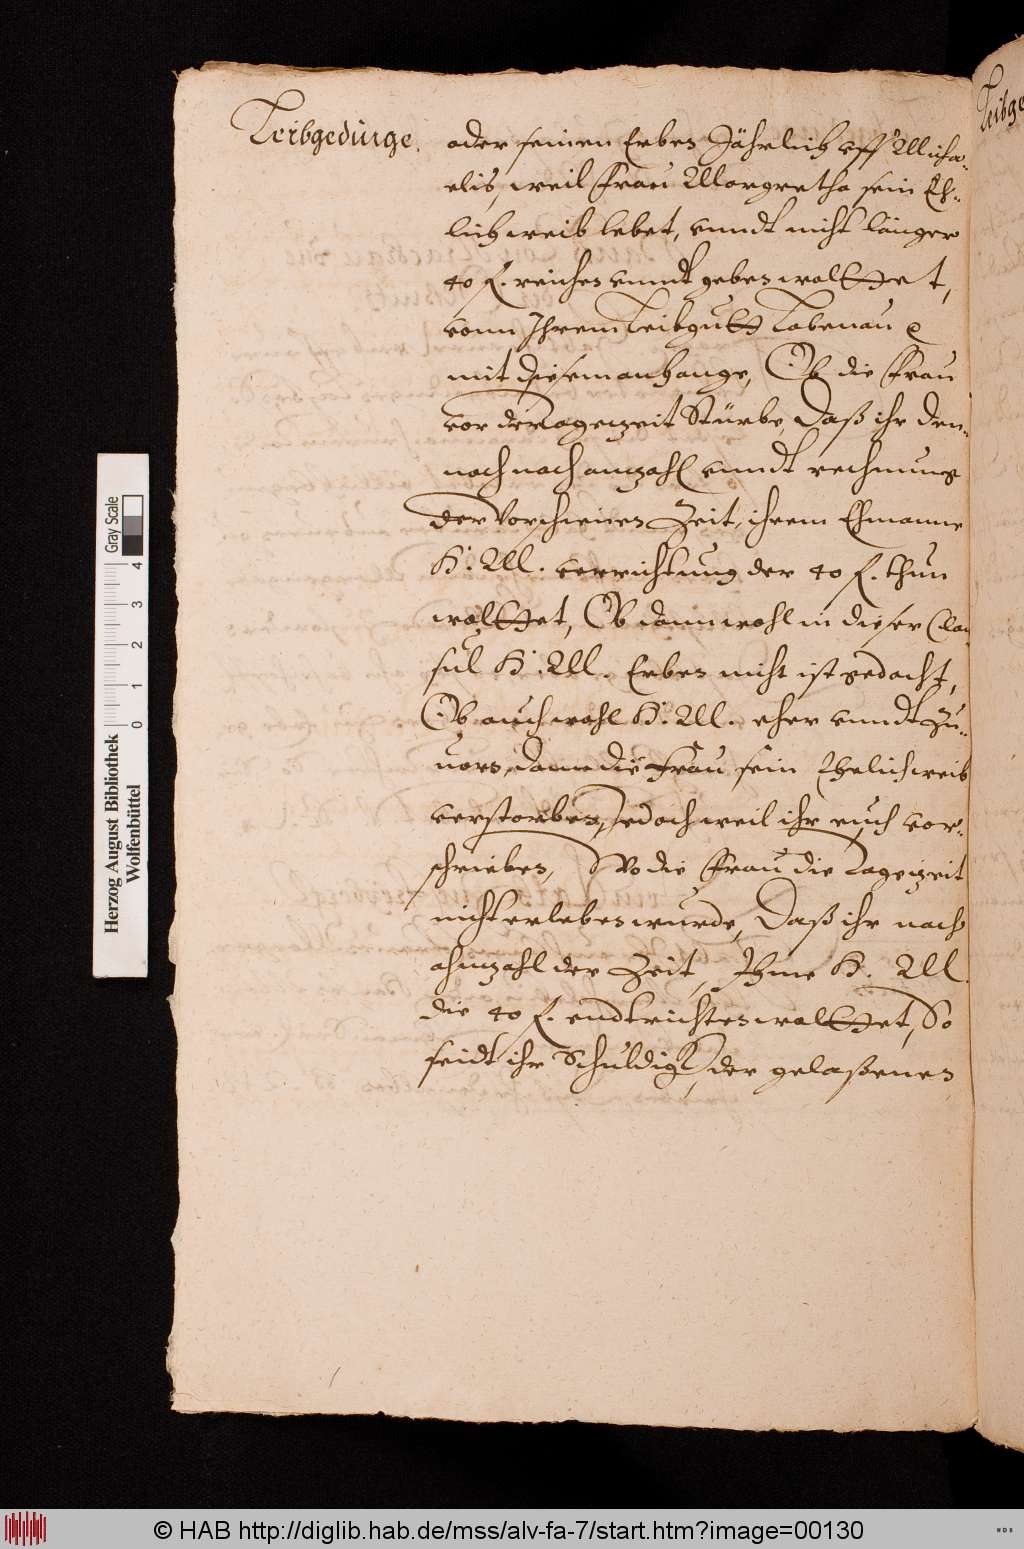 Leibgedinge.
oder seinen Erben Jährlich vff Micha-
elis, weil Frau Margretha sein Eh-
lich weib lebet, vnndt nicht länger
40 f. reichen vnndt geben wolltet,
vonn Ihrem Leibgutt Labenau
mit diesem anhange, Ob die Frau
vor der tagezeit Stürbe, Daß ihr den-
noch nach anzahl vnndt rechnung
der Vorschienen Zeit, ihrem Ehmanne
H. M. verrichtung der 40 f. thun
wolltet, Ob dann wohl in dieser Clau
sul H. M. Erben nicht ist gedacht,
Ob auch wohl H. M. eher vnndt Zu-
uorn, dann die Frau sein Ehelich weib
verstorben, Jedoch weil ihr euch vor-
schrieben, Wo die Frau die tagezeit
nicht erleben wurde, Daß ihr nach
ahnzahl der Zeit, Ihme H. M.
die 40 f. endtrichten wolltet, So
seidt ihr Schuldig, der gelaßenen
Leibge
Herzog August Bibliothek
Wolfenbüttel
Gray Scale
0 1 2 3 4
© HAB http://diglib.hab.de/mss/alv-fa-7/start.htm?image=00130